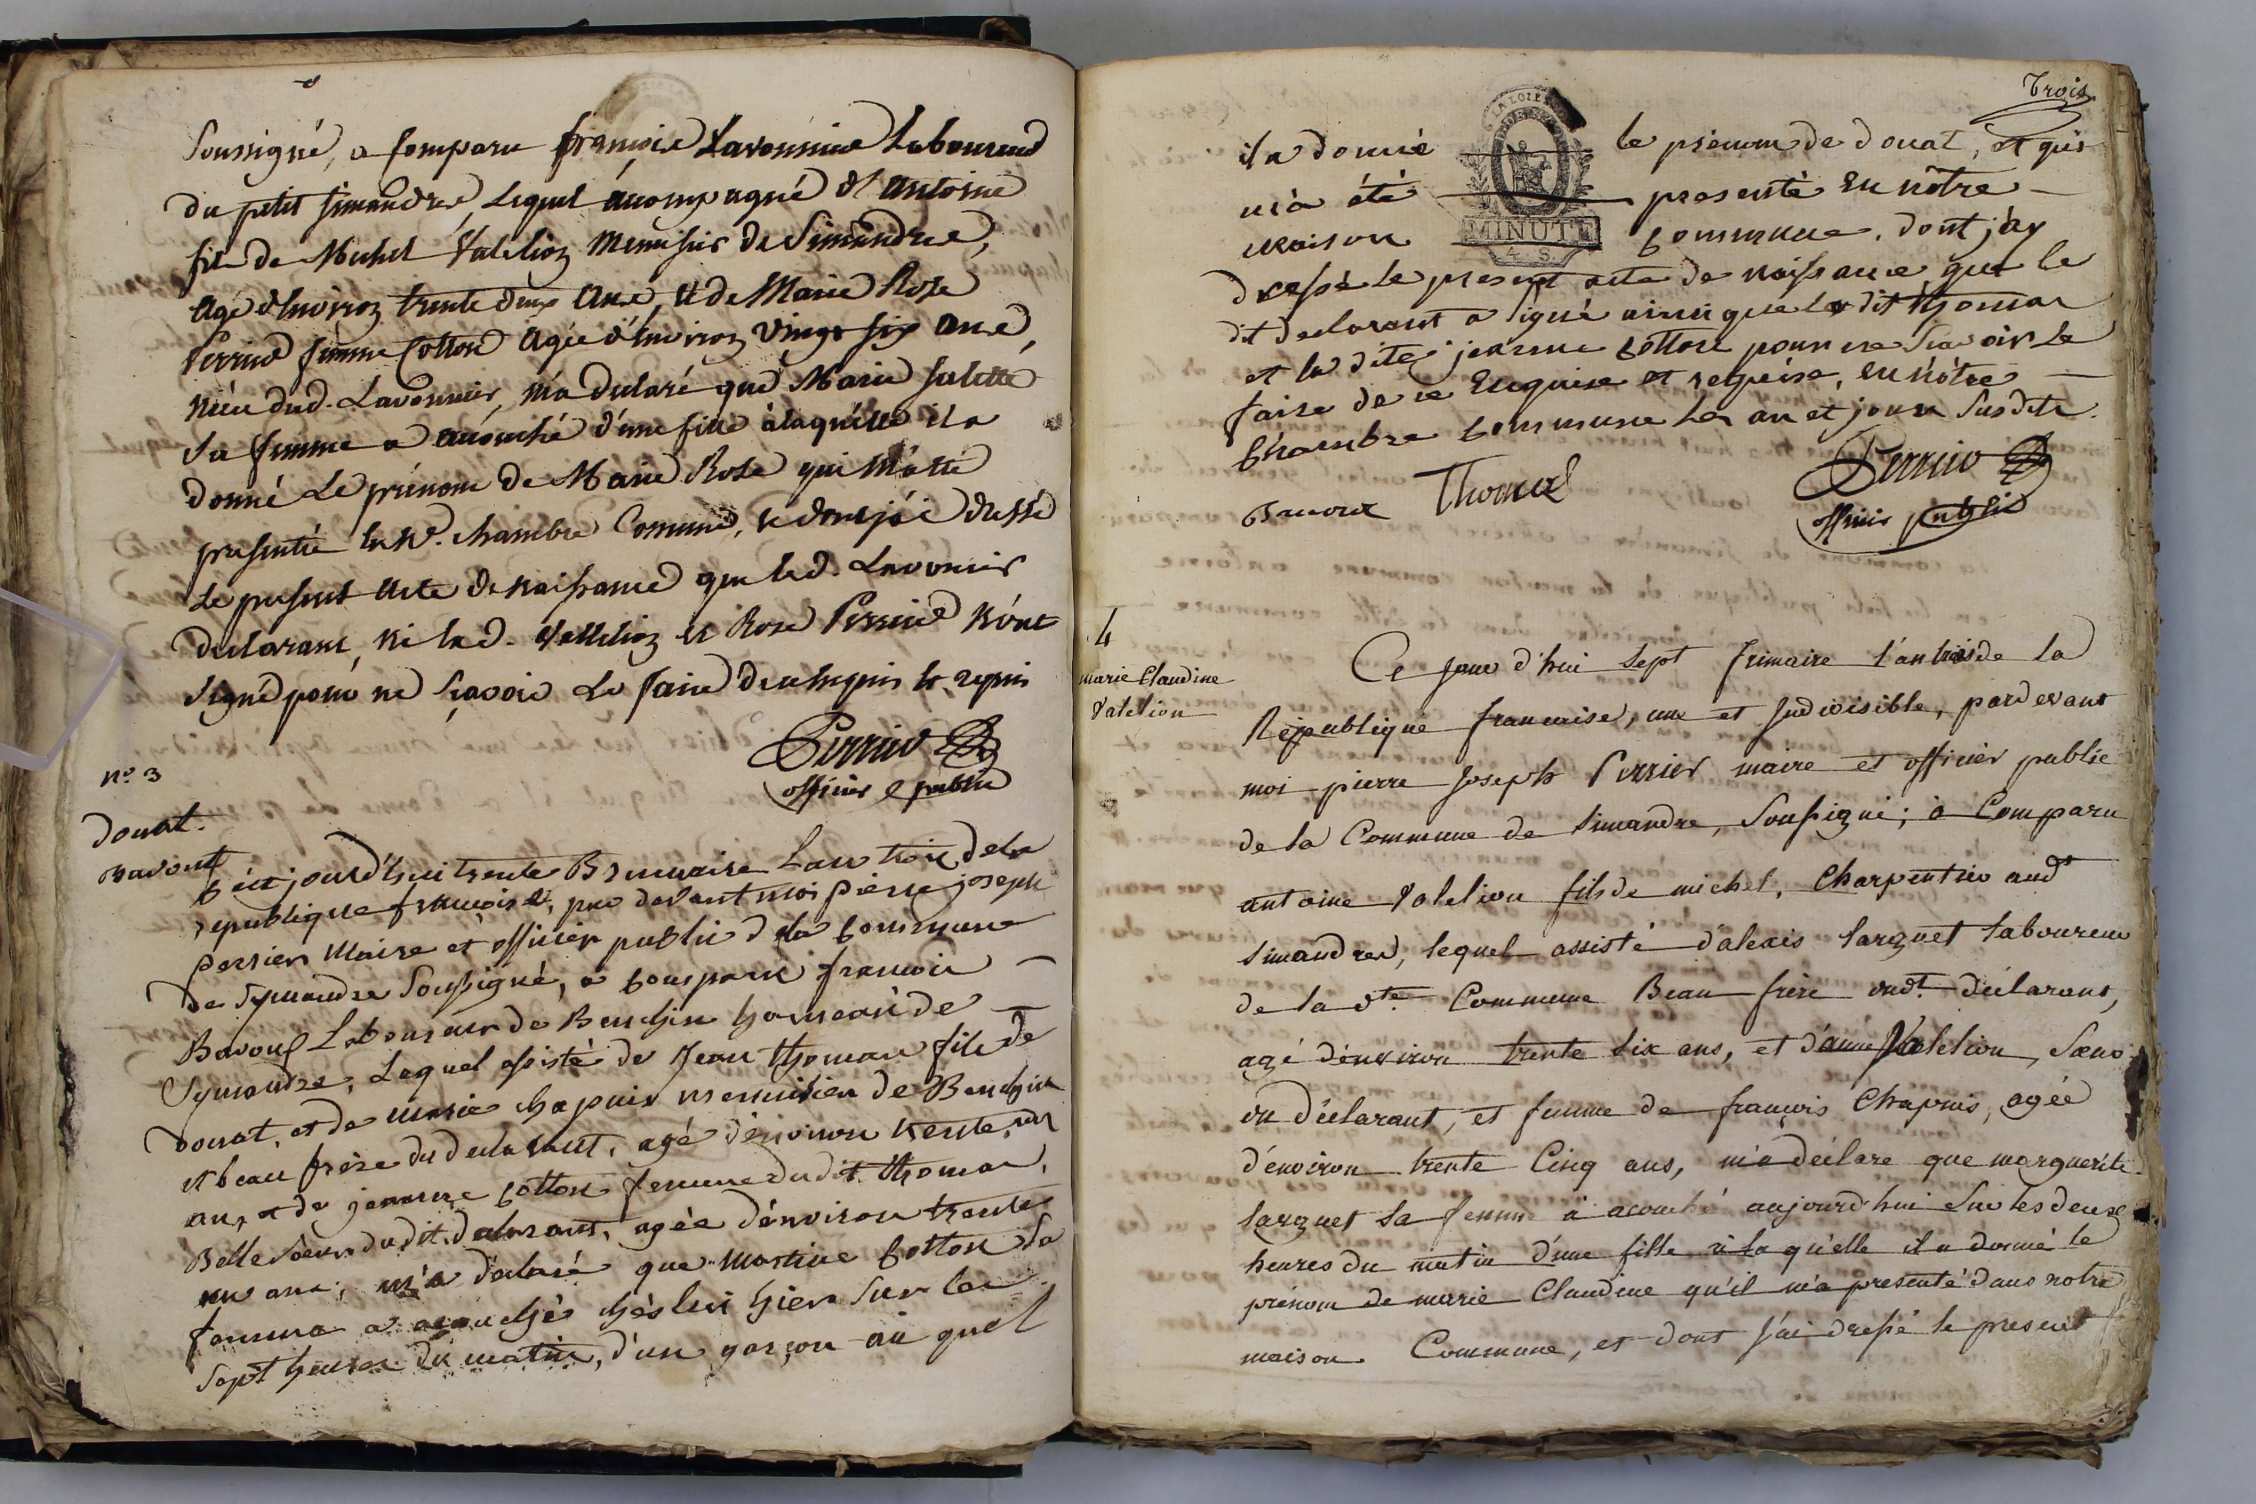 soussigné, a comparu françois Lavonnier Laboureur
du petit simandre, Lequel acompagné d'antoine
fils de Michel Vatelion Menuisier de Simandre,
agé d'environ trente deux ans, et de Marie Rose
Perrier femme Cotton agée d'environ vingt six ans,
niéce dud. Lavonnier, m'a déclaré que Marie
sa femme a acouché d'une fille à laquelle il a
donné Le prénom de Marie Rose qui m'a été
présentée en N. chambre Commune, et dont j'ai dressé
Le présent acte de naissance que led. Lavonnier
déclarant, ni led. Vatelion et Rose Perrier n'ont
signé pour ne sçavoir Le faire de ce enquis et requis
Perrier
officier public
n.o 3
Donat.
Bavoux
Ce jourd'hui trente Brumaire L'an trois de la
republique françoise, par devant moi pierre joseph
perrier Maire et officier public de la commune
de Symandre Soussigné, a comparu françois
Bavoux Laboureur de Banchin hameau de
Symandre, Lequel assisté de Jean thomas fils de
donat, et de marie chapuis menuisier de Banchin
et beau frère du declarant, agé d'environ trente
ans, et de jeanne cotton femme dudit thomas,
Belle soeur dudit declarant, agée d'environ trente
un ans, m'a déclaré que martine Cotton sa
femme a acouché chés lui hier sur les
sept heures du matin, d'un garçon au quel
Trois
LA LOI
MINUTE
4 S.
il a donné le prénom de donat, et qui
m'a été presenté en nôtre
maison commune, dont j'ay
dressé le present acte de naissance que le
dit declarant a signé ainsi que le dit thomas
et la dite jeanne cotton pour ne sçavoir le
faire de ce enquise et requise, en nôtre
chambre commune les an et jour susdits.
Bavoux Thomas
Perrier
officier public
4
marie Claudine
Vatelion
Ce jourd'hui sept frimaire l'an trois de la
République francaise, une et indivisible, pardevant
moi pierre Joseph Perrier maire et officier public
de la Commune de simandre, soussigné; a Comparu
antoine Vatelion fils de michel, Charpentier audt
simandre, lequel assisté d'alexis larguet laboureur
de la dte Commune Beau frère dudt déclarant,
agé d'environ trente six ans, et d'anne Vatelion, soeur
du déclarant, et femme de françois Chapuis, agée
d'environ trente Cinq ans, m'a déclare que marguerite
larguet sa femme a acouché aujourd'hui sur les deux
heures du matin d'une fille à la qu'elle il a donné le
prénom de marie Claudine qu'il m'a presenté dans notre
maison Commune, et dont j'ai dressé le present